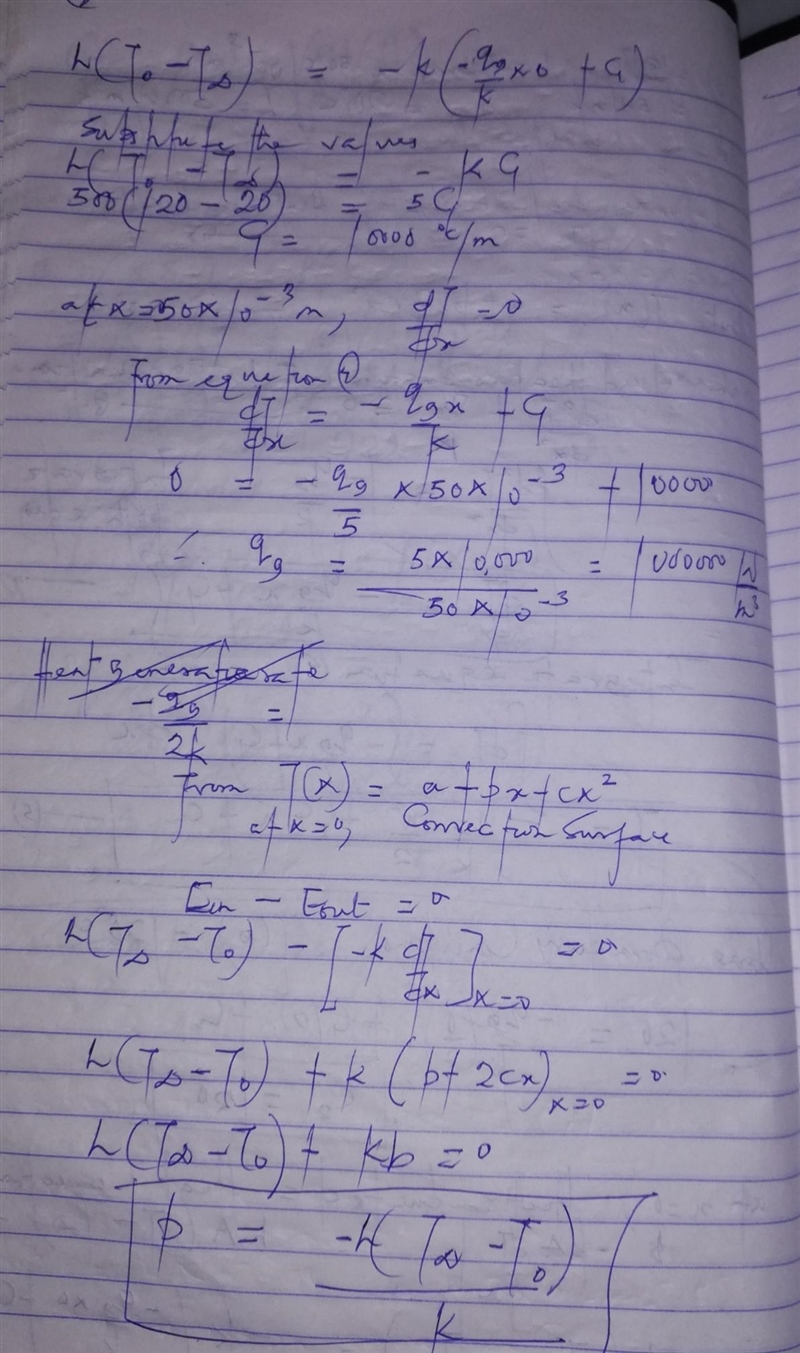 h(T₀ - T∞) = -k(-q₉/k × 0 + C₁)
Substitute the values
h(T₀ - T∞) = - k C₁
500(120 - 20) = 5C₁
C₁ = 10000 °C/m
at x = 50 × 10⁻³ m, dT/dx = 0
From equation ②
dT/dx = - q₉x/k + C₁
0 = - q₉/5 × 50 × 10⁻³ + 10000
∴ q₉ = 5 × 10,000 / 50 × 10⁻³ = 1000000 W/m³
Heat generation rate
- q₉/2k =
From T(x) = a + bx + cx²
at x = 0, Convection Surface
Ein - Eout = 0
h(T∞ - T₀) - [-k dT/dx]ₓ₌₀ = 0
h(T∞ - T₀) + k (b + 2cx)ₓ₌₀ = 0
h(T∞ - T₀) + kb = 0
b = -h(T∞ - T₀) / k